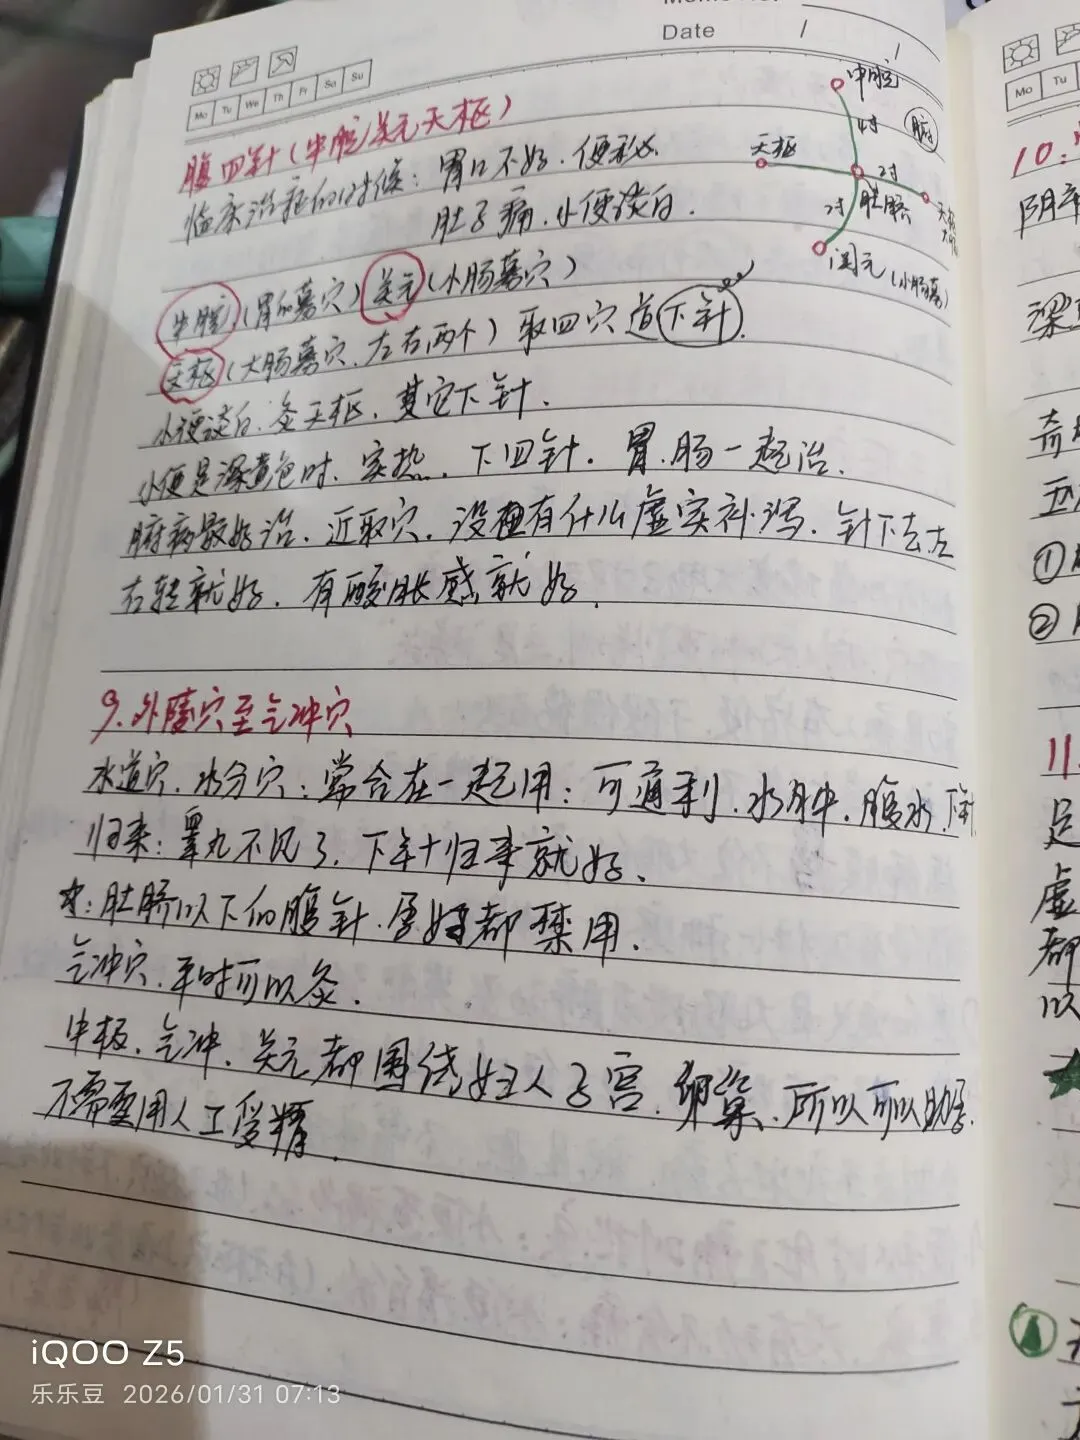 Date / /
Mo Tu We Th Fr Sa Su
腹四针(中脘/关元天枢)
临床治症的时候：胃口不好、便秘
肚子痛、小便淡白.
中脘
4寸
腑
天枢
2寸
肚脐
2寸
天枢
关元(小肠募)
中脘(胃的募穴)关元(小肠募穴)
天枢(大肠募穴、左右两个)取四穴道下针.
小便淡白、灸天枢、其它下针.
小便是深黄色时、实热、下四针. 胃、肠一起治.
腑病最好治、近取穴、没有什么虚实补泻、针下去左
右转就好、有酸胀感就好.
9.外陵穴至气冲穴
水道穴、水分穴：常合在一起用：可通利、水肿、腹水、下针
归来：睾丸不见了、下针归来就好、
☆：肚脐以下的腹针、孕妇都禁用.
气冲穴、平时可以灸.
中极、气冲、关元都围绕妇人子宫、卵巢、所以可以助孕.
不需要用人工受精.
Mo Tu
10:
阴
深
奇
①
②
11.
足
虚
都
以
iQOO Z5
乐乐豆 2026/01/31 07:13